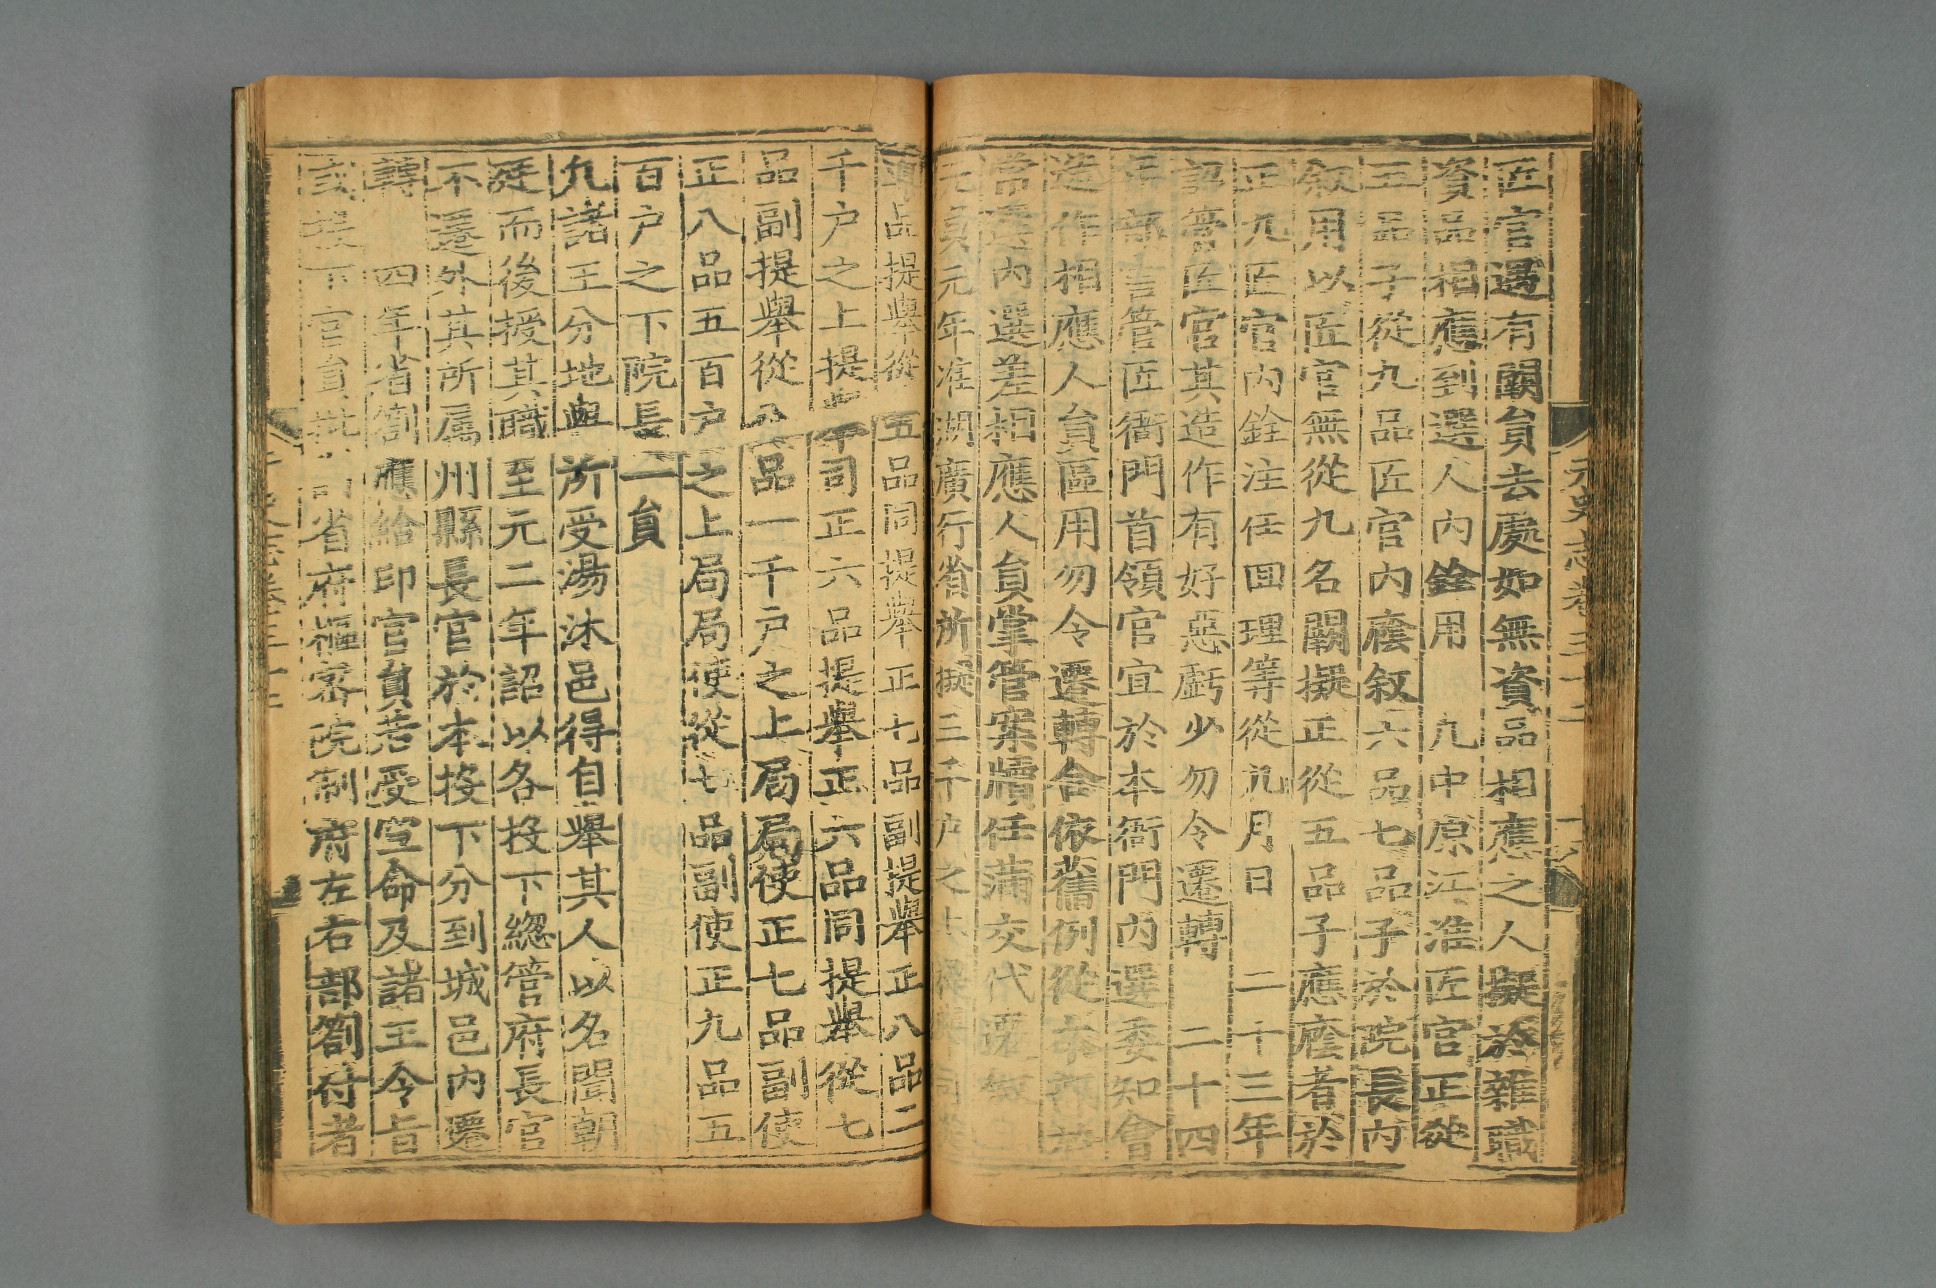 匠官遇有闕負去處如無資品相應之人擬於雜職
資品相應到選人內銓用 九中原江淮匠官正從
三品子從九品匠官內廕叙六品七品子於院長內
叙用以匠官無從九名闕擬正從五品子應廕者於
正九匠官內銓注任回理等從九月日 二十三年
詔管匠官其造作有好惡虧少勿令遷轉 二十四
部言管匠衙門首領官宜於本衙門內選委知會
造作相應人負區用勿令遷轉合依舊例從本部
常選內選差相應人負掌管案牘任滿交代遷叙
元貞元年准湖廣行省所擬三千戶之上提
提舉從五品同提舉正七品副提舉正八品二
千戶之上提舉司正六品提舉正六品同提舉從七
品副提舉從八品一千戶之上局局使正七品副使
正八品五百戶之上局局使從七品副使正九品五
百戶之下院長一負
九諸王分地與所受湯沐邑得自舉其人以名聞朝
廷而後授其職至元二年詔以各投下緫管府長官
不遷外其所屬州縣長官於本投下分到城邑內遷
轉 四年省劄應給印官負若受宣命及諸王令旨
或投下官負批省府樞密院制府左右部劄付者
元史志卷三十二